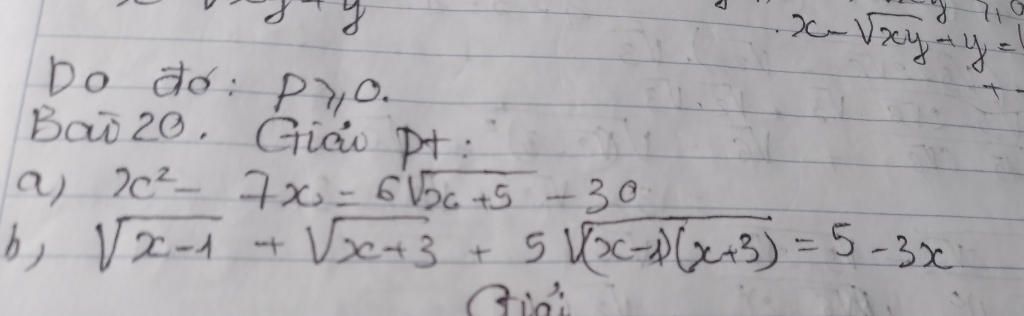 x - √xy + y = 
Do đó: P ≥ 0.
Bài 20. Giải pt:
a) x² - 7x = 6√x+5 - 30
b) √x-1 + √x+3 + 5√(x-1)(x+3) = 5 - 3x
Giải